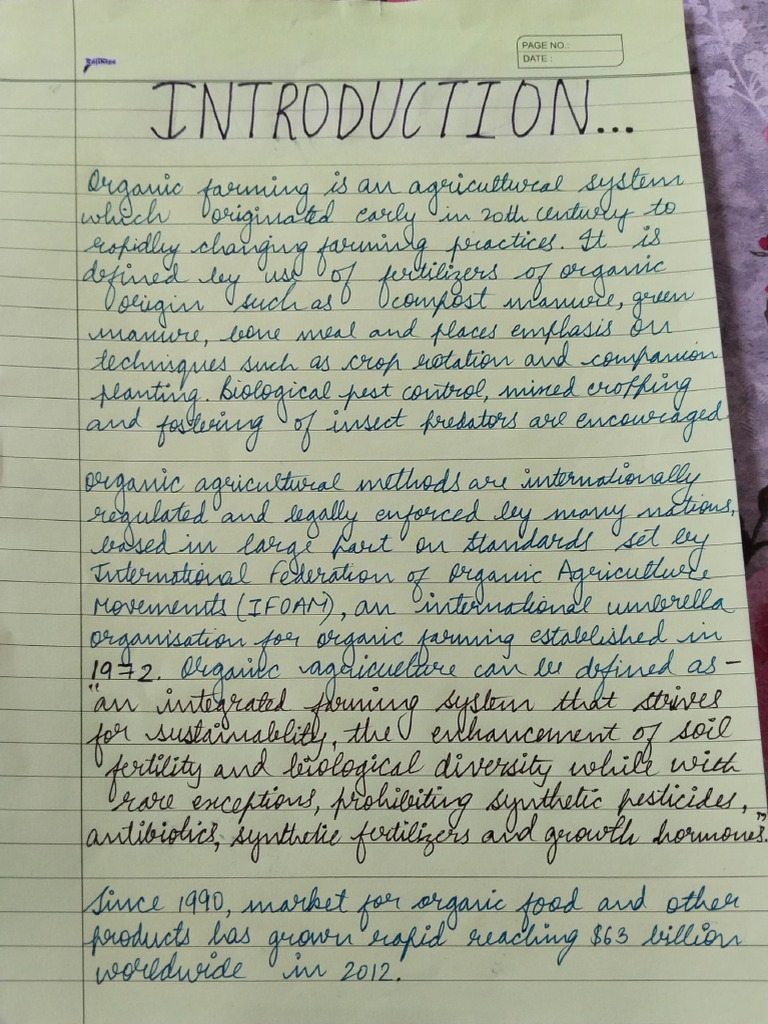 PAGE NO.:
DATE :
INTRODUCTION...
Organic farming is an agricultural system
which originated early in 20th century to
rapidly changing farming practices. It is
defined by use of fertilizers of organic
origin such as compost manure, green
manure, bone meal and places emphasis on
techniques such as crop rotation and companion
planting. Biological pest control, mixed cropping
and fostering of insect predators are encouraged
Organic agricultural methods are internationally
regulated and legally enforced by many nations,
based in large part on standards set by
International Federation of Organic Agriculture
Movements (IFOAM), an international umbrella
organisation for organic farming established in
1972. Organic agriculture can be defined as -
"an integrated farming system that strives
for sustainability, the enhancement of soil
fertility and biological diversity while with
rare exceptions, prohibiting synthetic pesticides,
antibiotics, synthetic fertilizers and growth hormones."
Since 1990, market for organic food and other
products has grown rapid reaching $63 billion
worldwide in 2012.